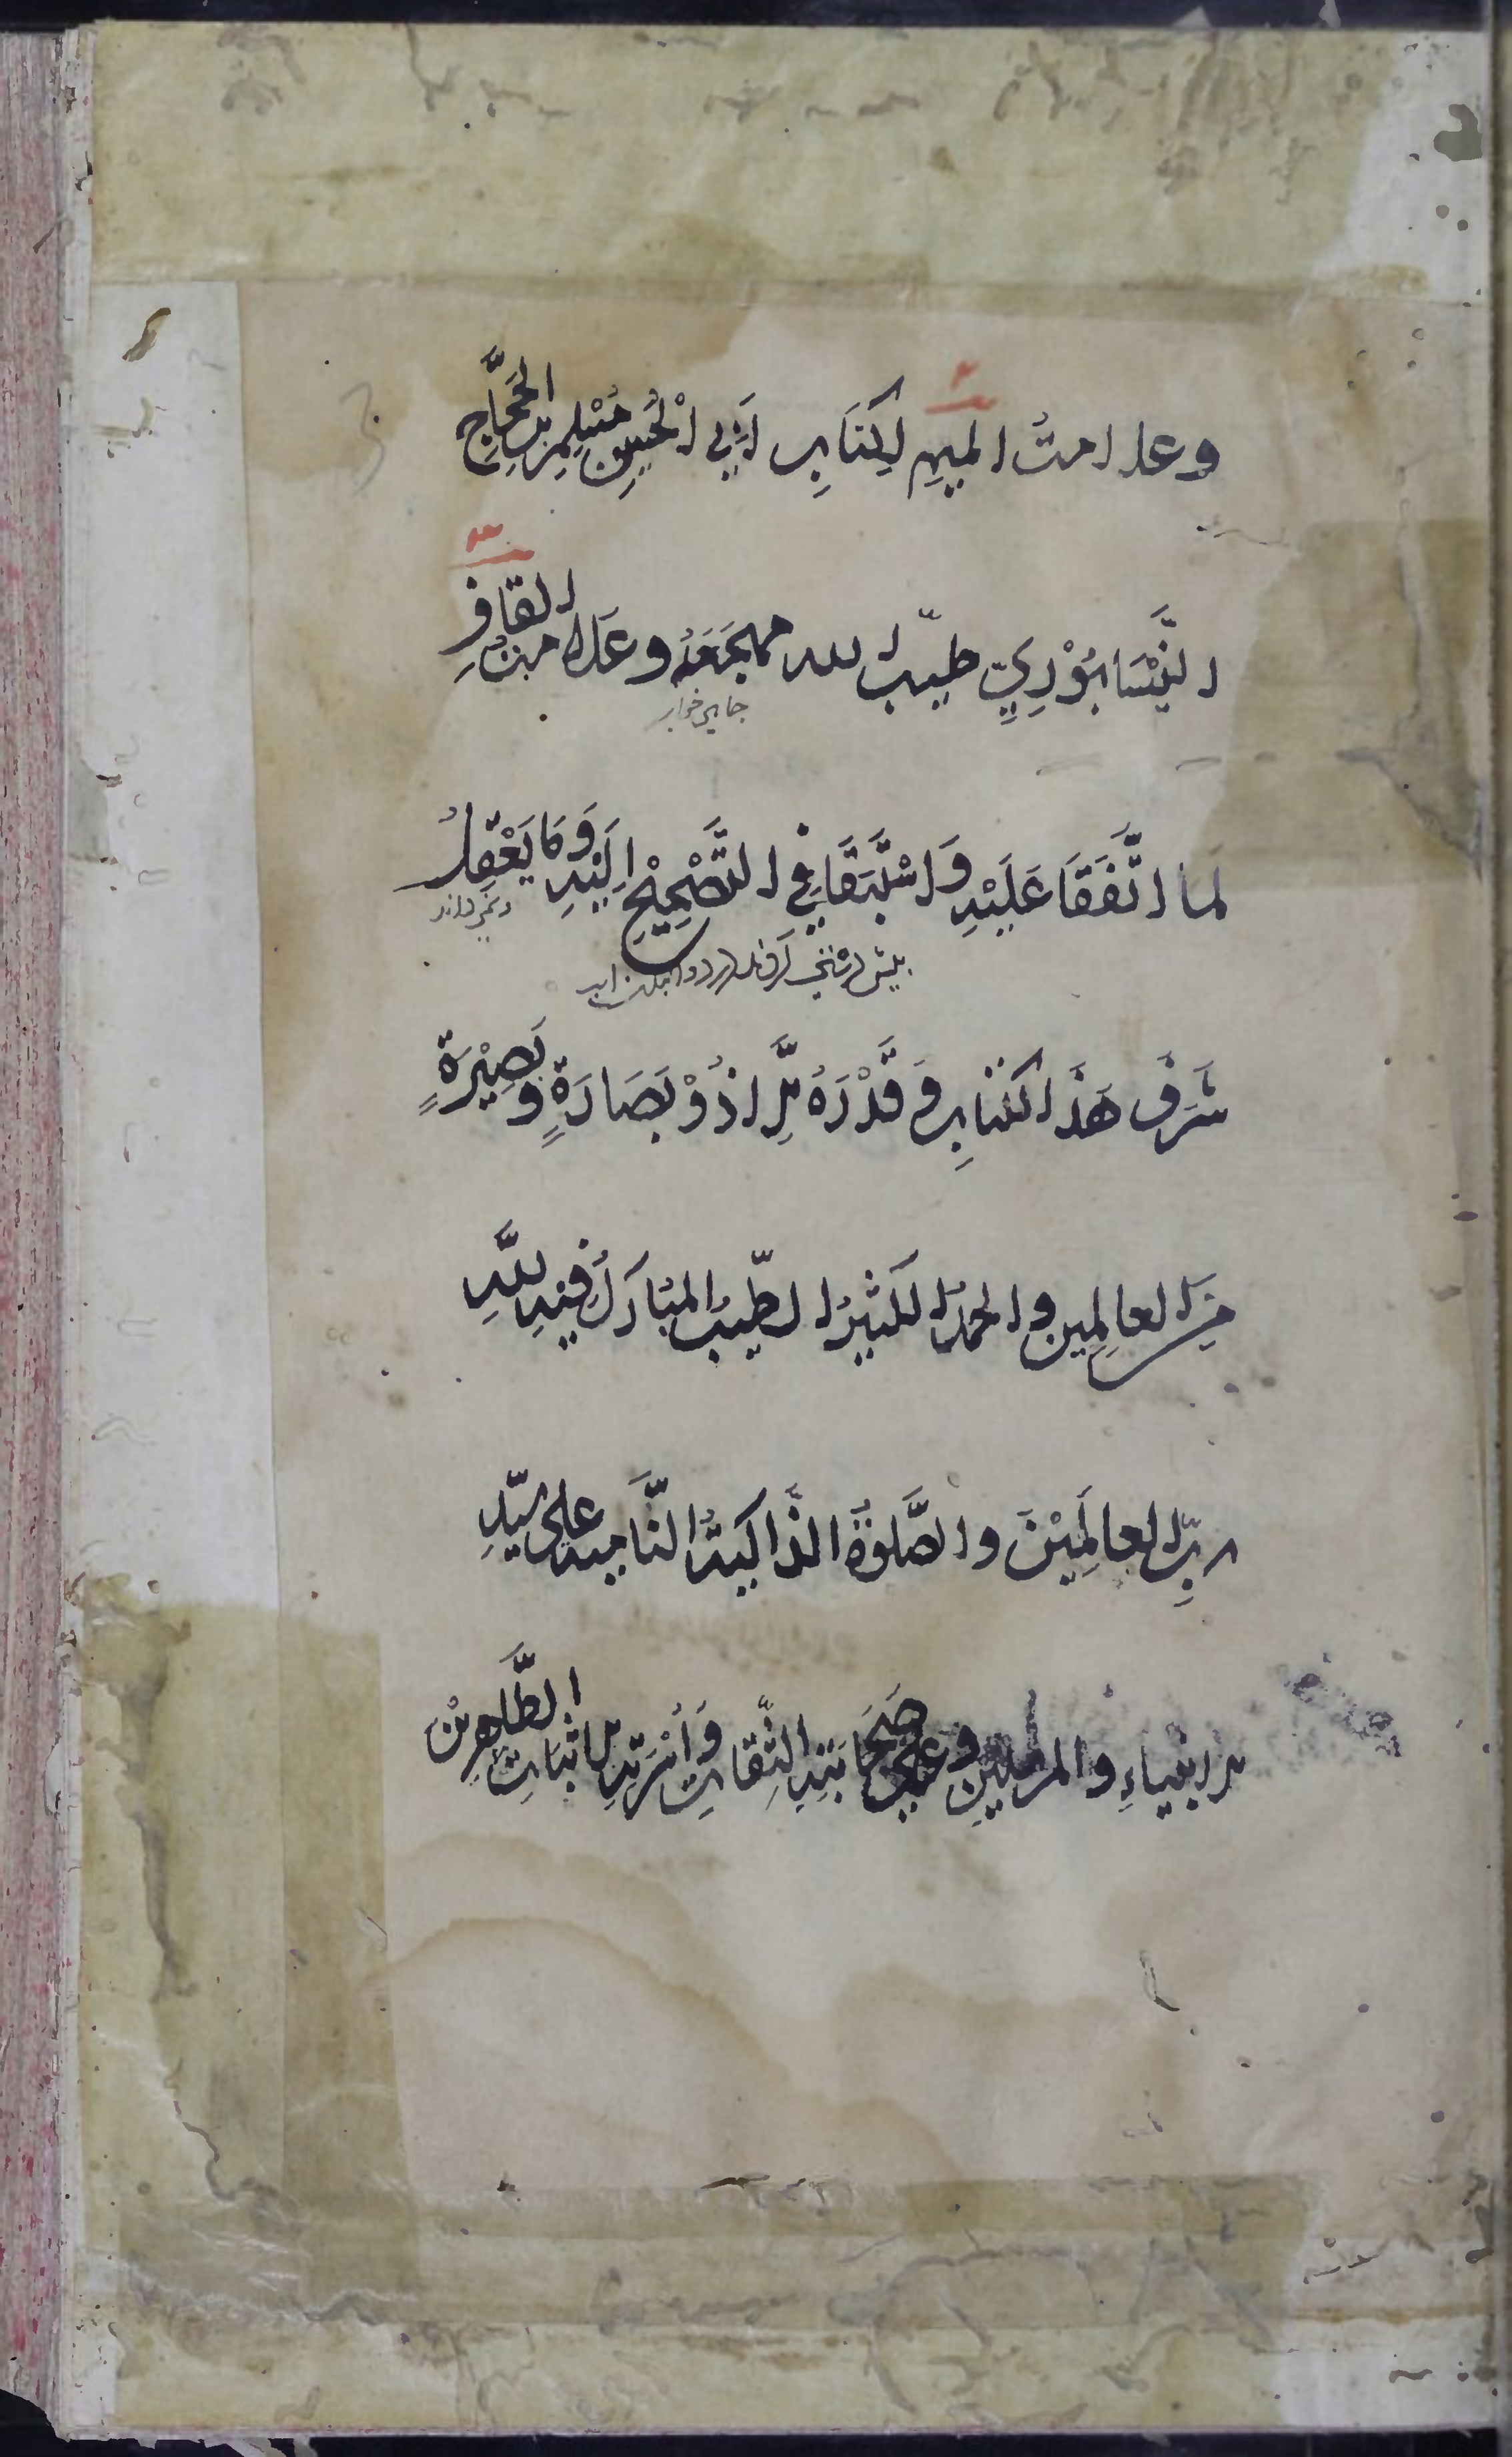 وعلامتُ الميمِ لِكِتَابِ اَبِي الْحُسَينِ مُسْلِمِ بنِ الحَجَّاجِ
النَّيْسَابُوْرِيِّ طيّبَ الله مهجَعَهُ وعَلامتُ القافِ
جاى خواب
لما اتَّفَقَا عَلَيْهِ وَاسْتَبَقَا فِي التَّصْحِيْحِ اِلَيْهِ وَمَا يَعْقِلُ
ونمى داند
شَرَفَ هَذَا الكتابِ وَقَدْرَهُ اِلَّا ذُوْ بَصَارَةٍ وبَصِيْرَةٍ
مِنَ العالِمِين والحمدُ الكثيرُ الطّيبُ المُبَارَكُ فيهِ لِلَّهِ
ربِّ العالَمِيْنَ والصَّلوةُ الذَّاكيَةُ النَّاميه على سيّدِ
الانبياءِ والمرسلينِ وعلى صَحَابَتِهِ الثِّقَاتِ وَأُسْرَتِهِ الاثبَاتِ الطَّاهِرِيْنَ